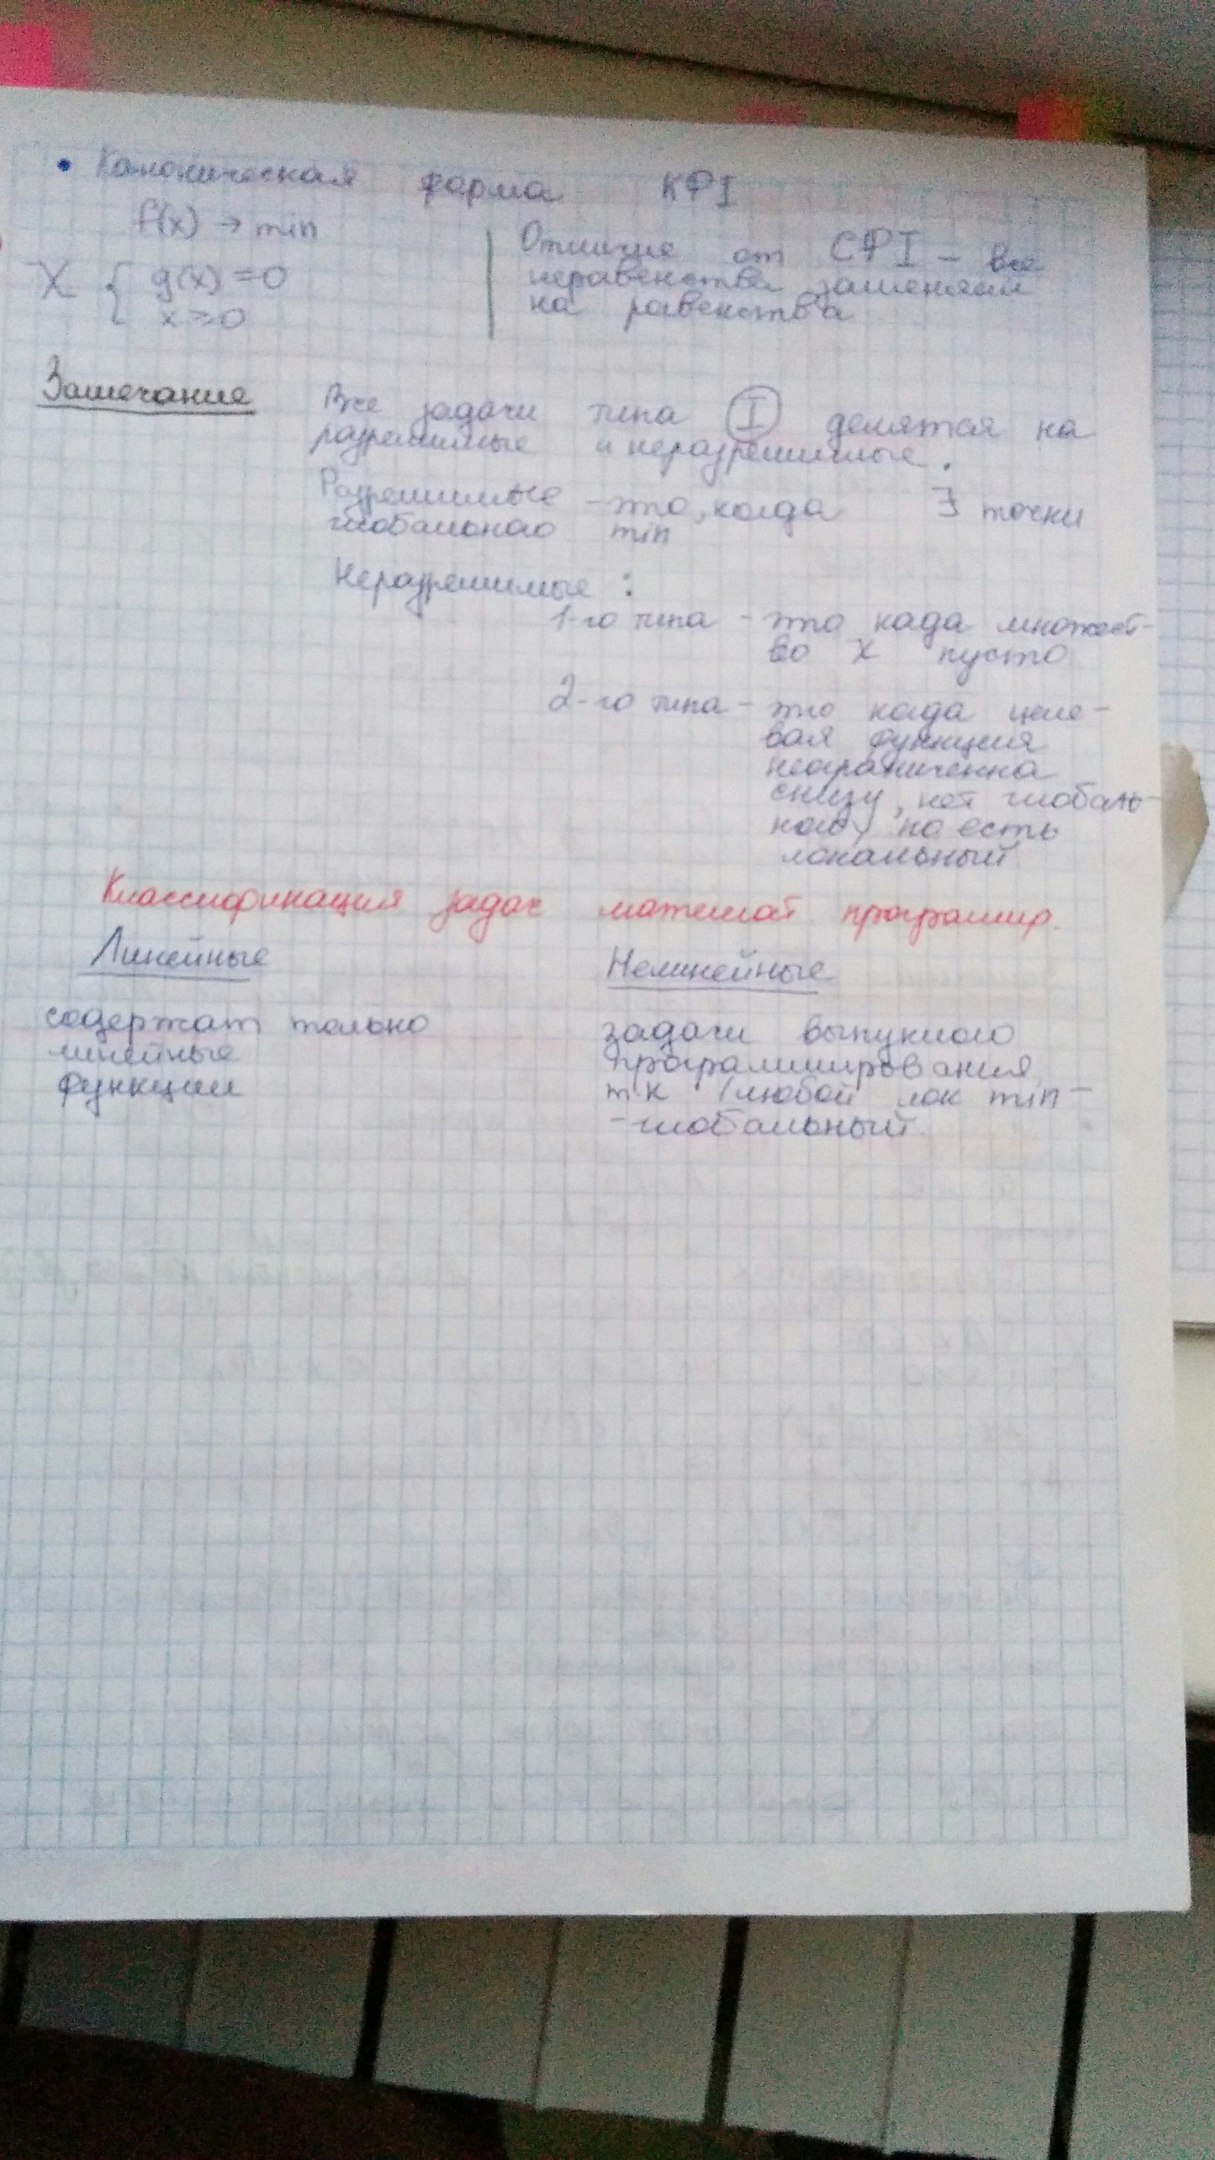 • Каноническая форма КФI
f(x) → min
X { g(x) = 0
x ≥ 0
Отличие от СФI – все
неравенства заменяем
на равенства
Замечание
Все задачи типа I делятся на
разрешимые и неразрешимые.
Разрешимые – это, когда ∃ точки
глобального min
Неразрешимые:
1-го типа – это када множест-
во X пусто
2-го типа – это када целе-
вая функция
неограниченна
снизу, нет глобаль-
ного, но есть
локальный
Классификация задач математ. програмир.
Линейные
содержат только
линейные
функции
Нелинейные
задачи выпуклого
программирования,
т.к любой лок min –
– глобальный.